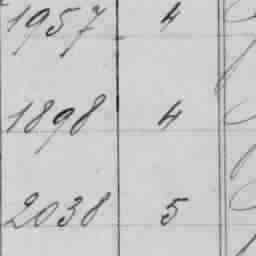 1957 4
1898 4
2038 5